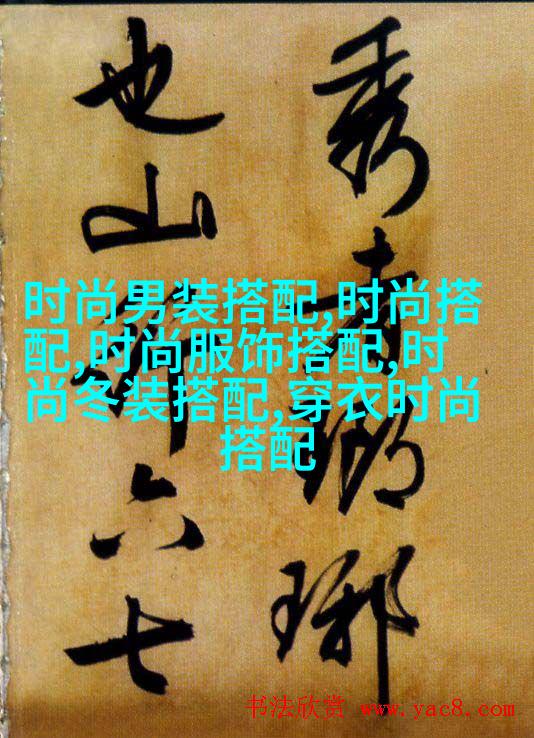 秀者瑯琊
也山行六七
时尚男装搭配,时尚搭
配,时尚服饰搭配,时
尚冬装搭配,穿衣时尚
搭配
书法欣赏 www.yac8.com